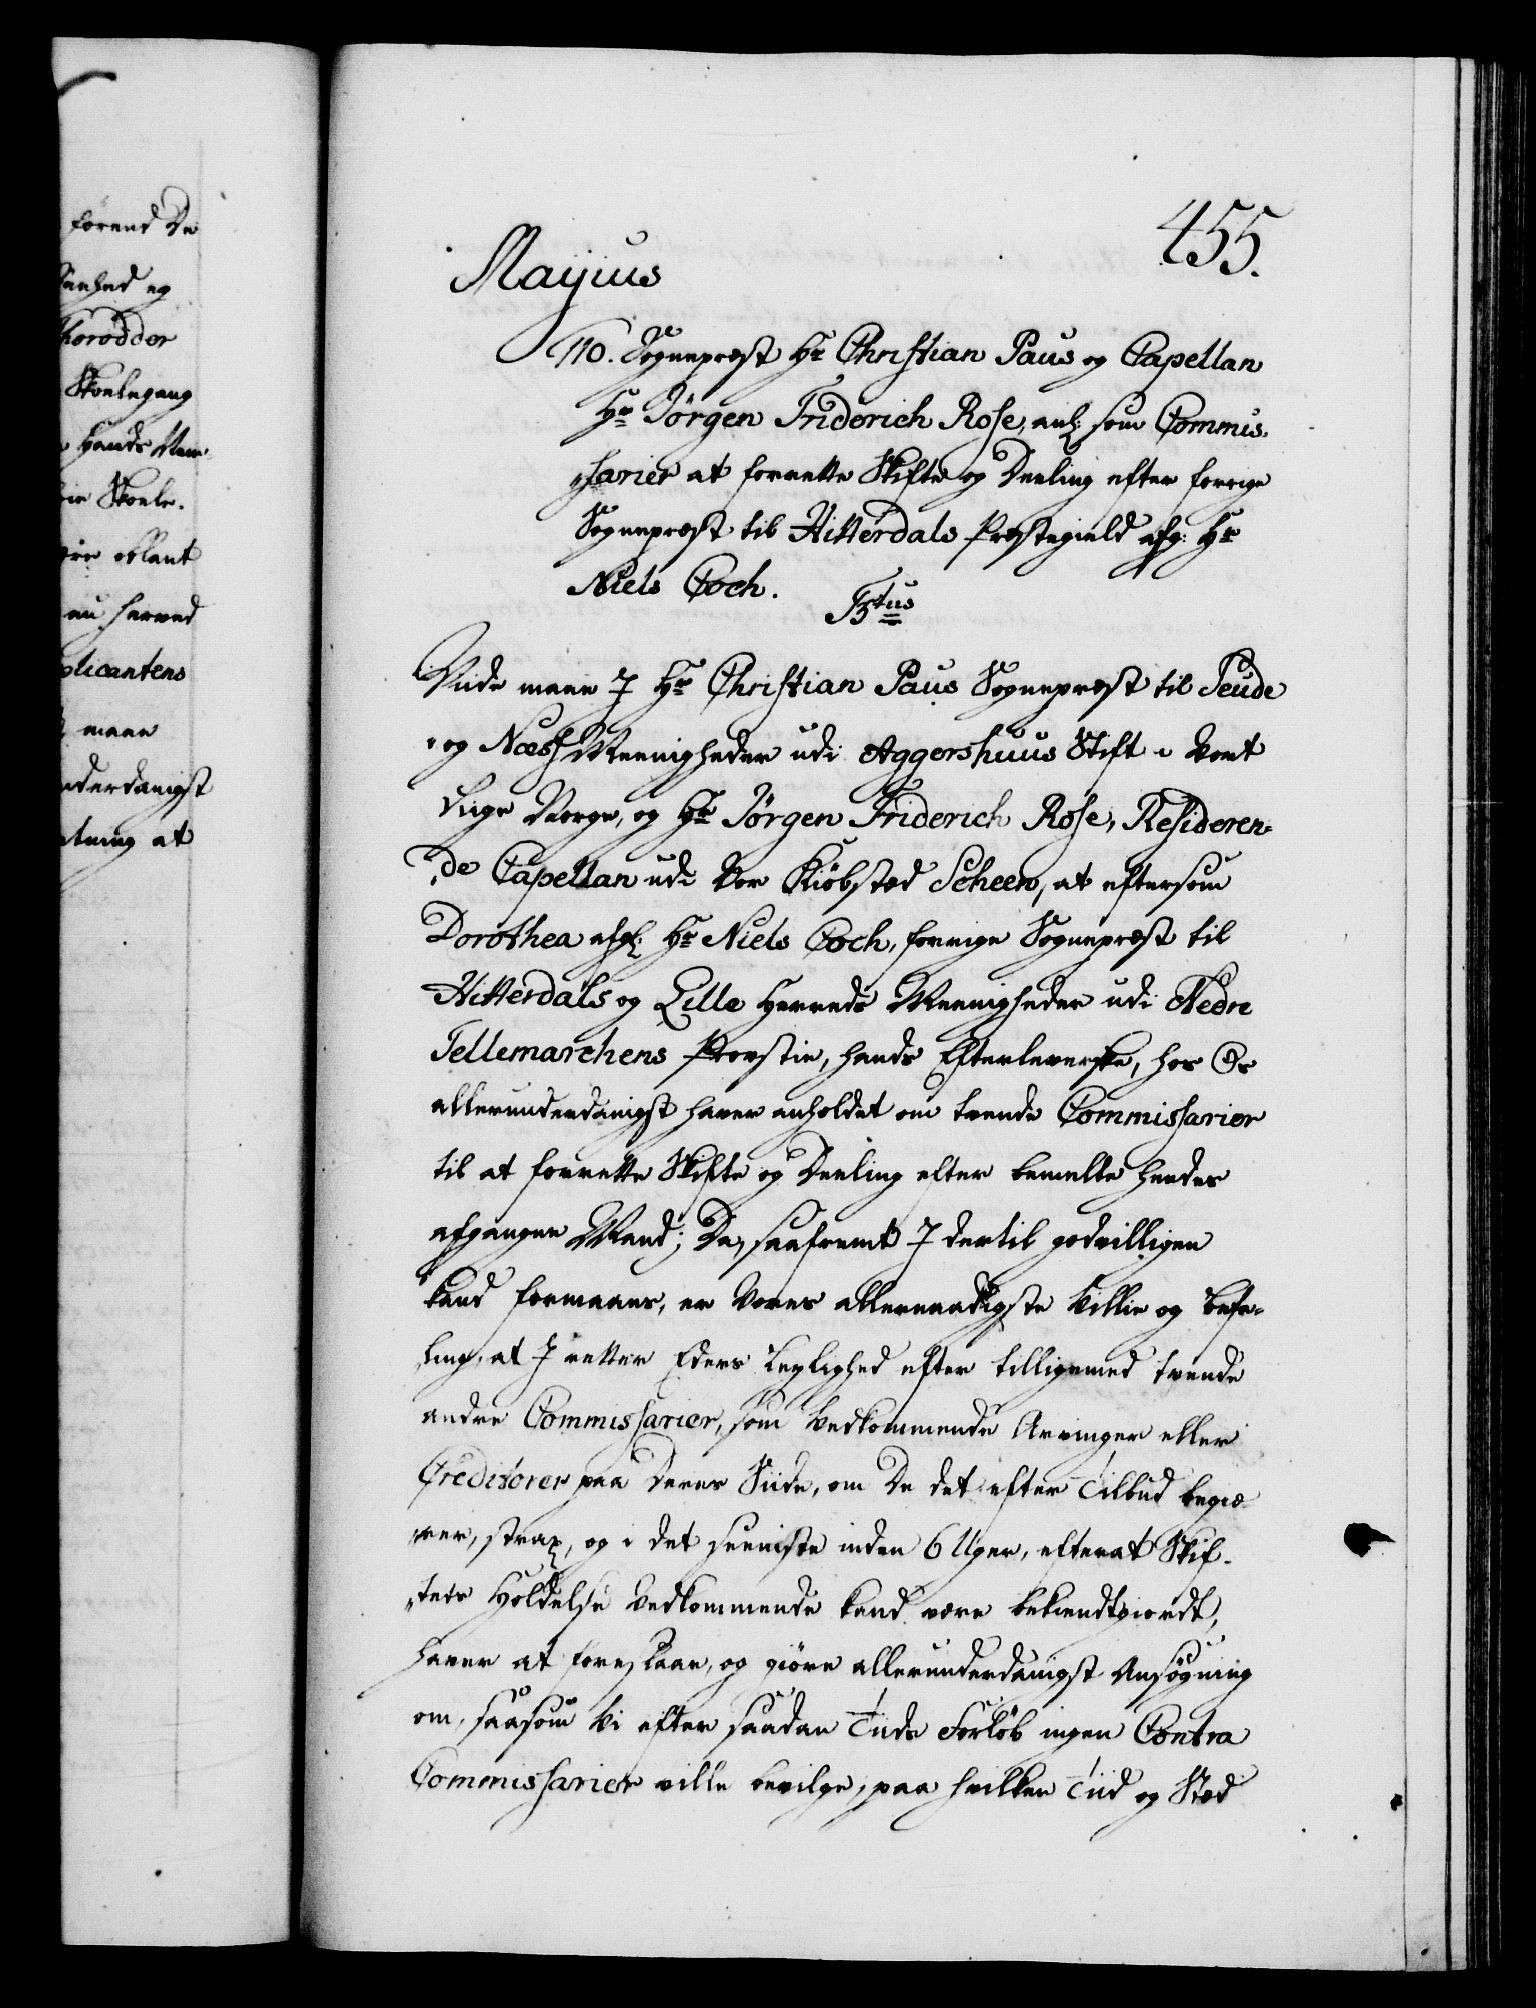 förend De
horöddor
Skoelegang
Hands
Skoele.
plicantens
maae
nderdanigst
at
455.
Mayius
110. Sognepræst Hr Christian Paus og Capellan
Hr Jörgen Friderich Rose, anl: som Commis-
sarier at forrette Skifte og Deeling efter forrige
Sognepræst til Hitterdals Præstegield afg: Hr
Niels Coch.
Viide maae I Hr Christian Paus Sognepræst til Seude
og Næss Meenigheder udi Aggershuus Stift i Vort
Riige Norge, og Hr Jörgen Friderich Rose, Resideren-
de Capellan udi Vor Kiöbstæd Scheen, at eftersom
Dorothea afgl: Hr Niels Coch, forrige Sognepræst til
Hitterdals og Lille Herreds Meenigheder udi Nedre
Tellemarchens Provstie, hands Efterleverske, hos Os
allerunderdanigst haver anholdet om tvende Commissarier
til at forrette Skifte og Deeling efter bemelte hendes
afgangne Mand; Da, saafremt I dertil godvilligen
kand formaaes, er Vores allernaadigste Villie og Befa-
ling, at I retter Eders Leylighed efter tilligemed tvende
andre Commissarier, som Vedkommende Arvinger eller
Creditorer paa Deres Siide, om De det efter Tilbud begiæ-
rer, strax, og i det seeniste inden 6 Uger, efterat Skif-
tets Holdelse Vedkommende kand være bekiendtgiordt,
haver at foreslaae, og giöre allerunderdanigst Ansögning
om, saasom Vi efter saadan Tiids Forlöb ingen Contra
Commissarier ville bevilge, paa hvilken Tiid og Stæd